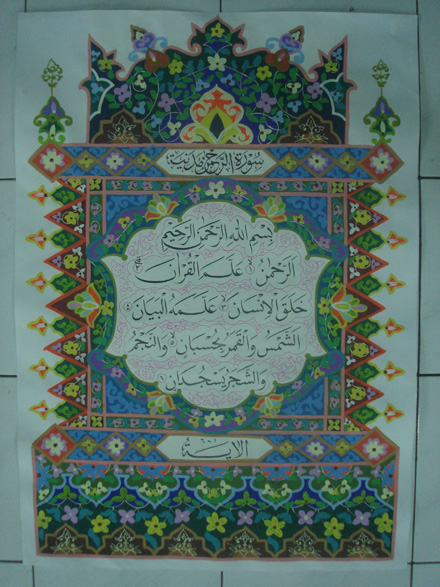 سورة الرحمن مدنية
بسم الله الرحمن الرحيم
الرحمن ١ علم القرآن ٢
خلق الإنسان ٣ علمه البيان ٤
الشمس والقمر بحسبان ٥ والنجم
والشجر يسجدان ٦
الآية